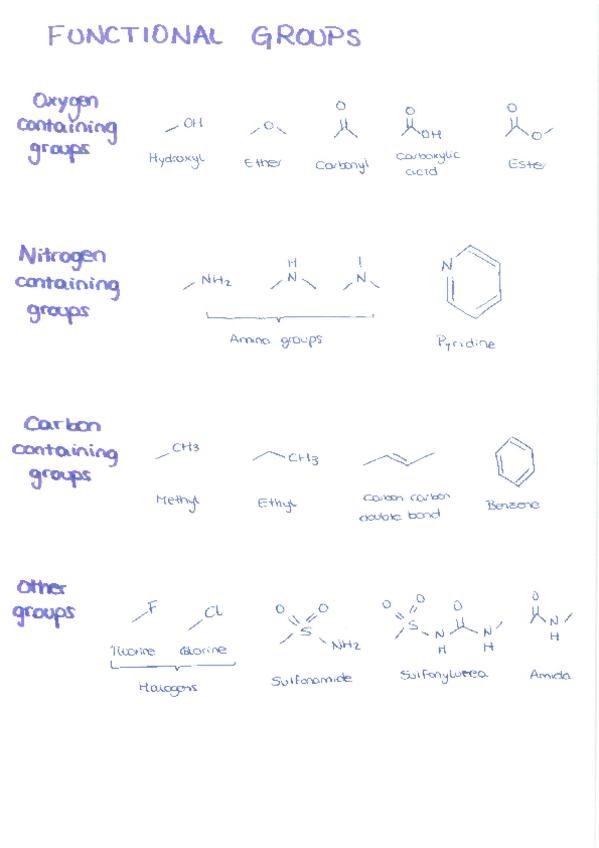 FUNCTIONAL GROUPS
Oxygen
containing
groups
OH
O
O
O
OH
O
O
Hydroxyl
Ether
Carbonyl
Carboxylic
acid
Ester
Nitrogen
containing
groups
NH2
H
N
N
N
Amino groups
Pyridine
Carbon
containing
groups
CH3
CH3
Methyl
Ethyl
Carbon carbon
double bond
Benzene
Other
groups
F
Cl
O
O
S
NH2
O
O
S
O
N
H
N
H
O
N
H
Fluorine
Chlorine
Halogens
Sulfonamide
Sulfonylurea
Amide